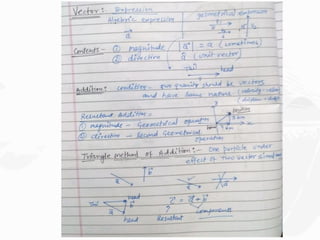 Vector:- Expression
Algebric expression
geometrical expression
a
Contents - ① magnitude |a| = a (sometimes)
② direction â (unit vector)
Tail head
Addition:- condition - quantity should be vectors
and have same nature
Resultant Addition -
① magnitude - Geometrical operation
② direction - second Geometrical
operation
Triangle method of Addition:- One particle under
effect of two vector
a b
Tail head
a b
head
c = a + b
Resultant components